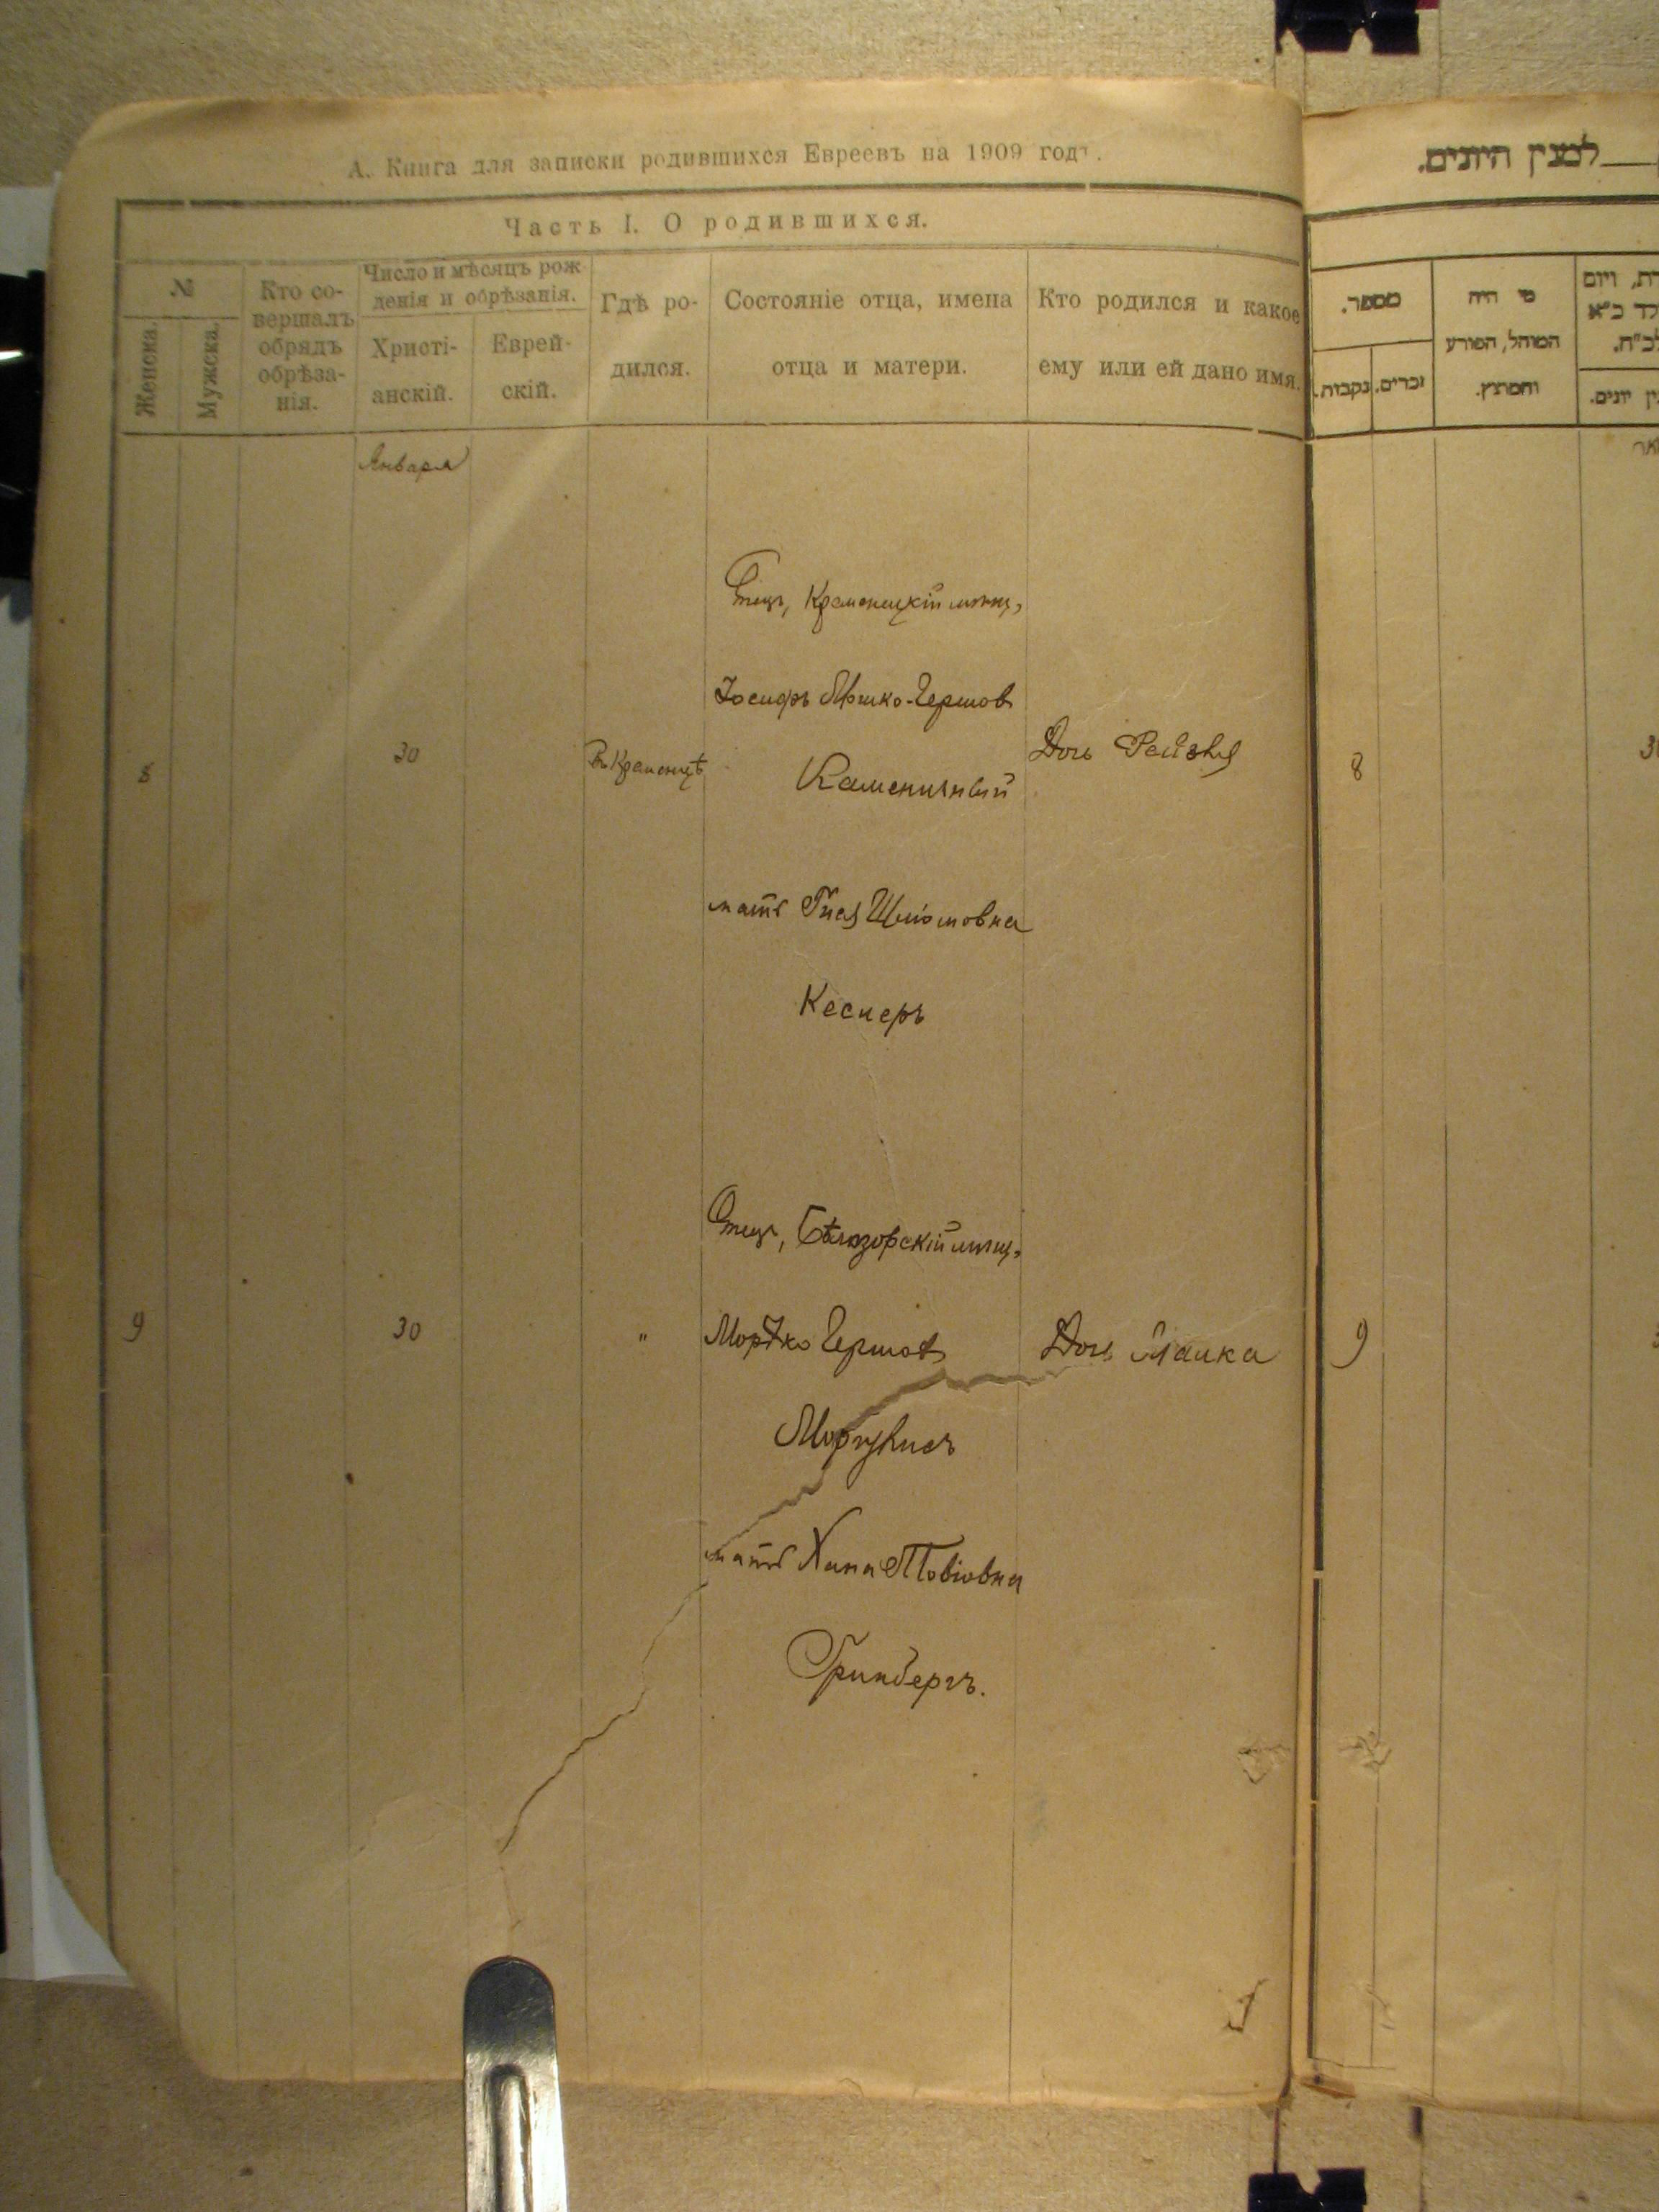 А. Книга для записки родившихся Евреевъ на 1909 годъ.
Часть I. О родившихся.
№
Женска.
Мужска.
Кто со-
вершалъ
обрядъ
обрѣза-
нія.
Число и мѣсяцъ рож-
денія и обрѣзанія.
Христі-
анскій.
Еврей-
скій.
Гдѣ ро-
дился.
Состояніе отца, имена
отца и матери.
Кто родился и какое
ему или ей дано имя.
Января
8
30
Въ Кременцѣ
Отецъ, Кременецкій мѣщ.
Іосифъ Мошко-Гершов
Каменичный
мать Гися Шліомовна
Кеснеръ
Дочь Рейзя
9
30
"
Отецъ, Бѣлозорскій мѣщ.
Мордко Гершов
мать Хана Товіовна
Гринбергъ.
Дочь
למנין היונים.
מספר.
נקבות.
זכרים.
מי היה
המוהל, הפורע
והמוצץ.
8
9